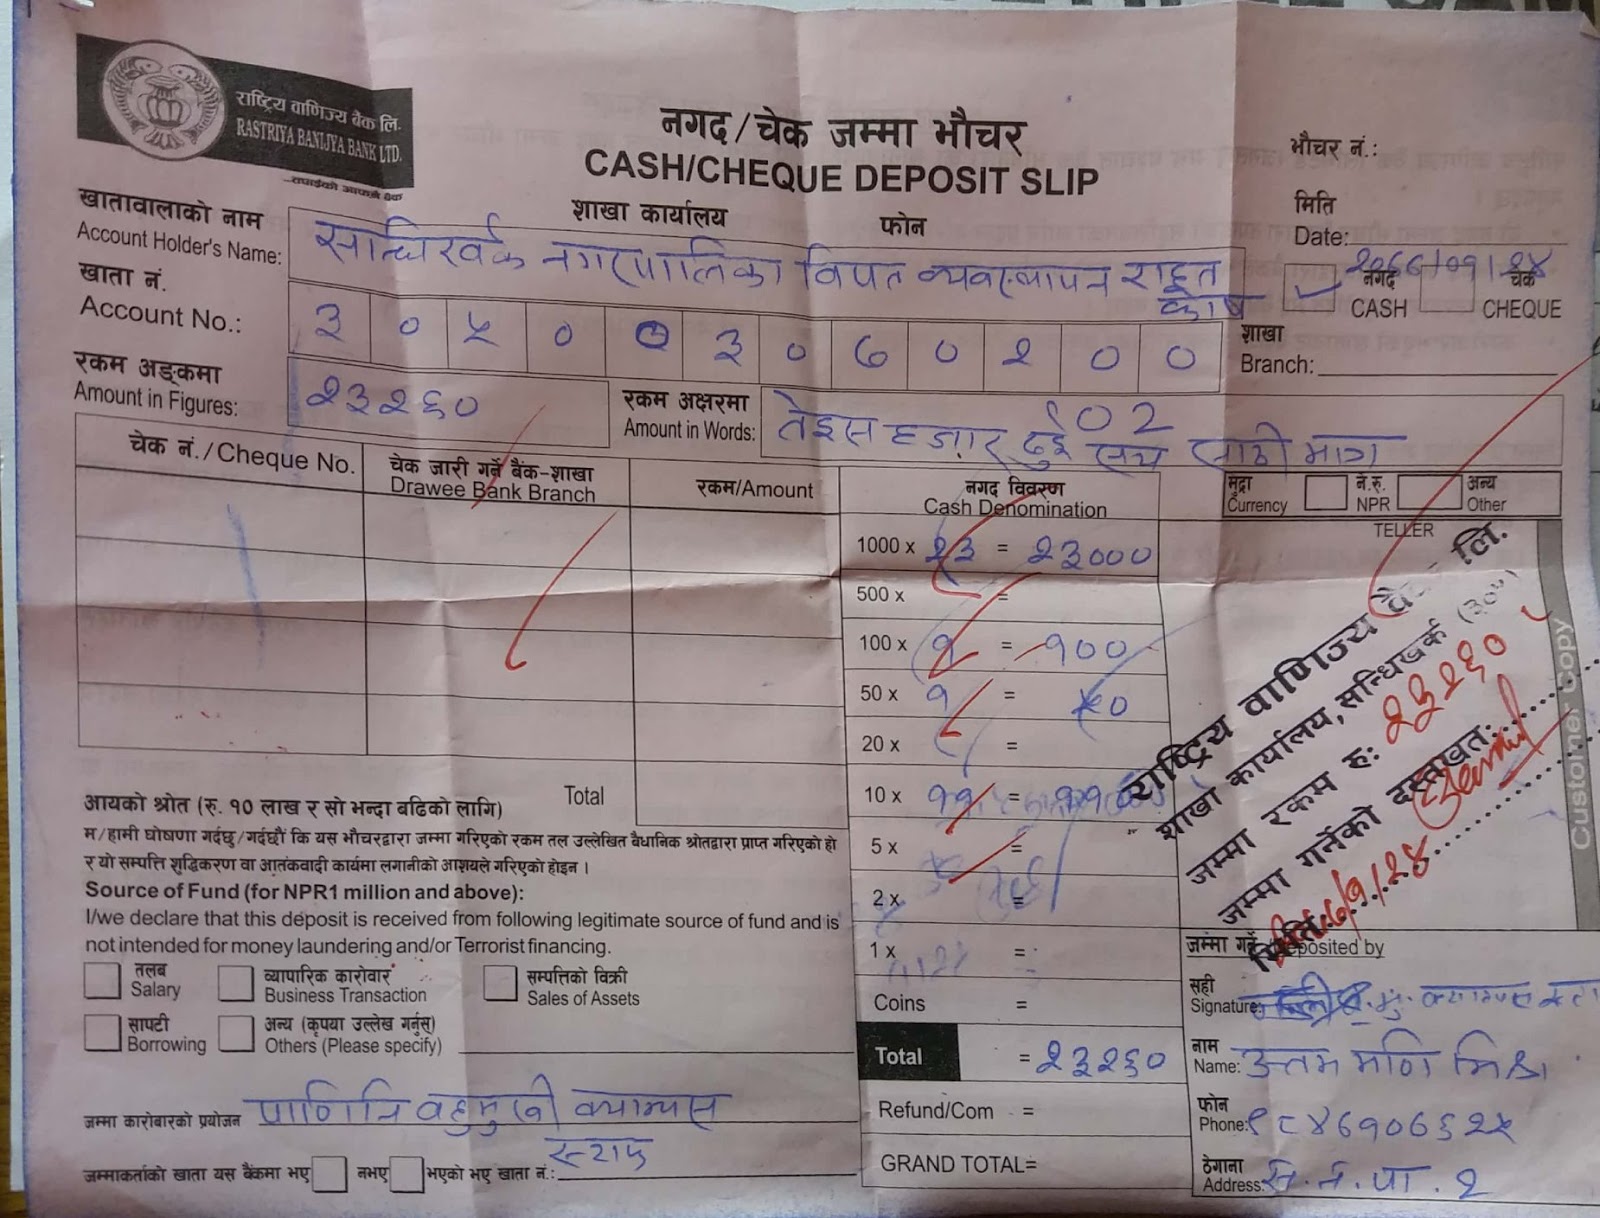 राष्ट्रिय वाणिज्य बैंक लि.
RASTRIYA BANIJYA BANK LTD.
...तपाईंको आफ्नै बैंक
नगद/चेक जम्मा भौचर
CASH/CHEQUE DEPOSIT SLIP
शाखा कार्यालय फोन
भौचर नं.:
मिति
Date: २०७७/०१/२४
खातावालाको नाम
Account Holder's Name: नगरपालिका विपत व्यवस्थापन राहत कोष
नगद CASH चेक CHEQUE
खाता नं.
Account No.: ३ ० ५ ० ० ३ ० ७ ० २ ० ०
शाखा
Branch:
रकम अङ्कमा
Amount in Figures: २३२६०
रकम अक्षरमा
Amount in Words: तेइस हजार दुई सय साठी मात्र
चेक नं./Cheque No.
चेक जारी गर्ने बैंक-शाखा
Drawee Bank Branch
रकम/Amount
नगद विवरण
Cash Denomination
मुद्रा Currency ने.रु. NPR अन्य Other
TELLER
1000 x २३ = २३०००
500 x =
100 x १ = १००
50 x १ = ५०
20 x =
10 x ११ = ११०
5 x =
2 x =
1 x =
Coins =
Total = २३२६०
Refund/Com =
GRAND TOTAL=
Total
आयको श्रोत (रु. १० लाख र सो भन्दा बढिको लागि)
म/हामी घोषणा गर्दछु/गर्दछौं कि यस भौचरद्वारा जम्मा गरिएको रकम तल उल्लेखित बैधानिक श्रोतद्वारा प्राप्त गरिएको हो
र यो सम्पत्ति शुद्धिकरण वा आतंकवादी कार्यमा लगानीको आशयले गरिएको होइन ।
Source of Fund (for NPR1 million and above):
I/we declare that this deposit is received from following legitimate source of fund and is
not intended for money laundering and/or Terrorist financing.
तलब
Salary
व्यापारिक कारोवार
Business Transaction
सम्पत्तिको विक्री
Sales of Assets
सापटी
Borrowing
अन्य (कृपया उल्लेख गर्नुस्)
Others (Please specify)
जम्मा कारोबारको प्रयोजन पाणिनि बहुमुखी क्याम्पस
स्टाफ
जम्माकर्ताको खाता यस बैंकमा भए नभए भएको भए खाता नं.:
राष्ट्रिय वाणिज्य बैंक लि.
शाखा कार्यालय, सन्धिखर्क (३०५)
जम्मा रकम रु: २३२६०
जम्मा गर्नेको दस्तखत:
मिति:
Customer Copy
जम्मा गर्ने Deposited by
सही
Signature:
नाम
Name: उत्तम मणि मिश्र
फोन
Phone: ९८४७१०७६२५
ठेगाना
Address: स.न.पा. २